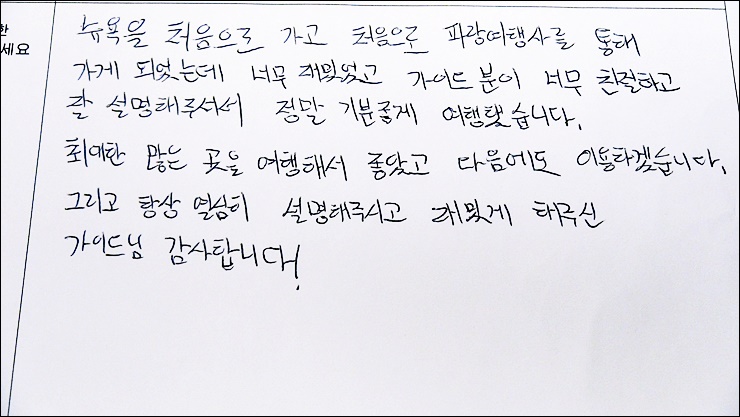 한
세요
뉴욕을 처음으로 가고 처음으로 파랑여행사를 통해
가게 되었는데 너무 재밌었고 가이드분이 너무 친절하고
잘 설명해주셔서 정말 기분좋게 여행했습니다.
최대한 많은 곳을 여행해서 좋았고 다음에도 이용하겠습니다.
그리고 항상 열심히 설명해주시고 재밌게 해주신
가이드님 감사합니다!